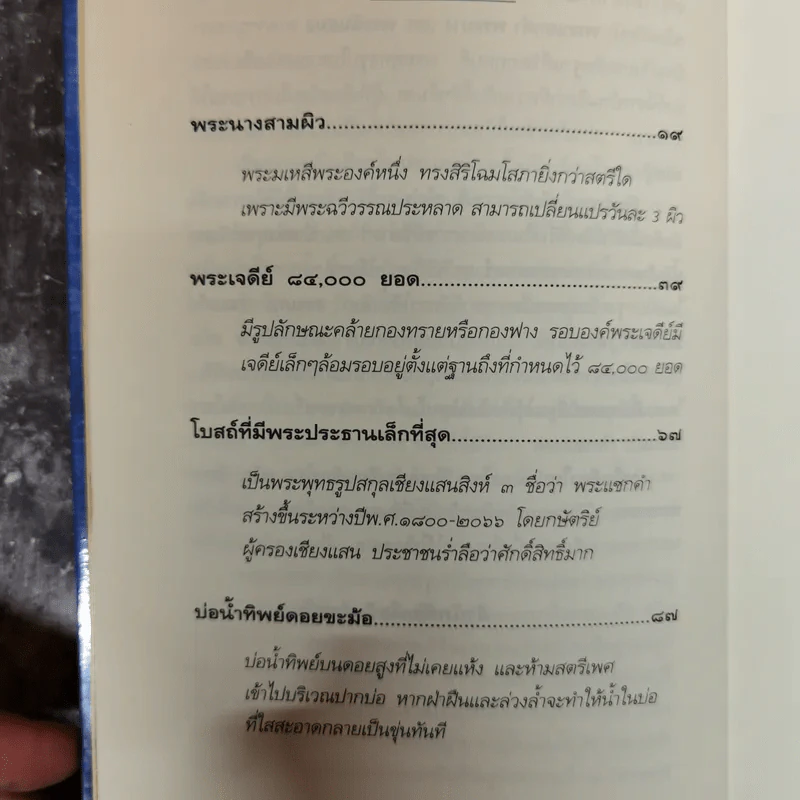 พระนางสามผิว..........................................................๑๙
พระมเหสีพระองค์หนึ่ง ทรงสิริโฉมโสภายิ่งกว่าสตรีใด
เพราะมีพระฉวีวรรณประหลาด สามารถเปลี่ยนแปรวันละ 3 ผิว
พระเจดีย์ ๘๔,๐๐๐ ยอด..........................................๓๙
มีรูปลักษณะคล้ายกองทรายหรือกองฟาง รอบองค์พระเจดีย์มี
เจดีย์เล็กๆล้อมรอบอยู่ตั้งแต่ฐานถึงที่กำหนดไว้ ๘๔,๐๐๐ ยอด
โบสถ์ที่มีพระประธานเล็กที่สุด....................................๖๗
เป็นพระพุทธรูปสกุลเชียงแสนสิงห์ ๓ ชื่อว่า พระแซกคำ
สร้างขึ้นระหว่างปีพ.ศ.๑๘๐๐-๒๐๖๖ โดยกษัตริย์
ผู้ครองเชียงแสน ประชาชนร่ำลือว่าศักดิ์สิทธิ์มาก
บ่อน้ำทิพย์ดอยขะม้อ................................................๘๗
บ่อน้ำทิพย์บนดอยสูงที่ไม่เคยแห้ง และห้ามสตรีเพศ
เข้าไปบริเวณปากบ่อ หากฝ่าฝืนและล่วงล้ำจะทำให้น้ำในบ่อ
ที่ใสสะอาดกลายเป็นขุ่นทันที